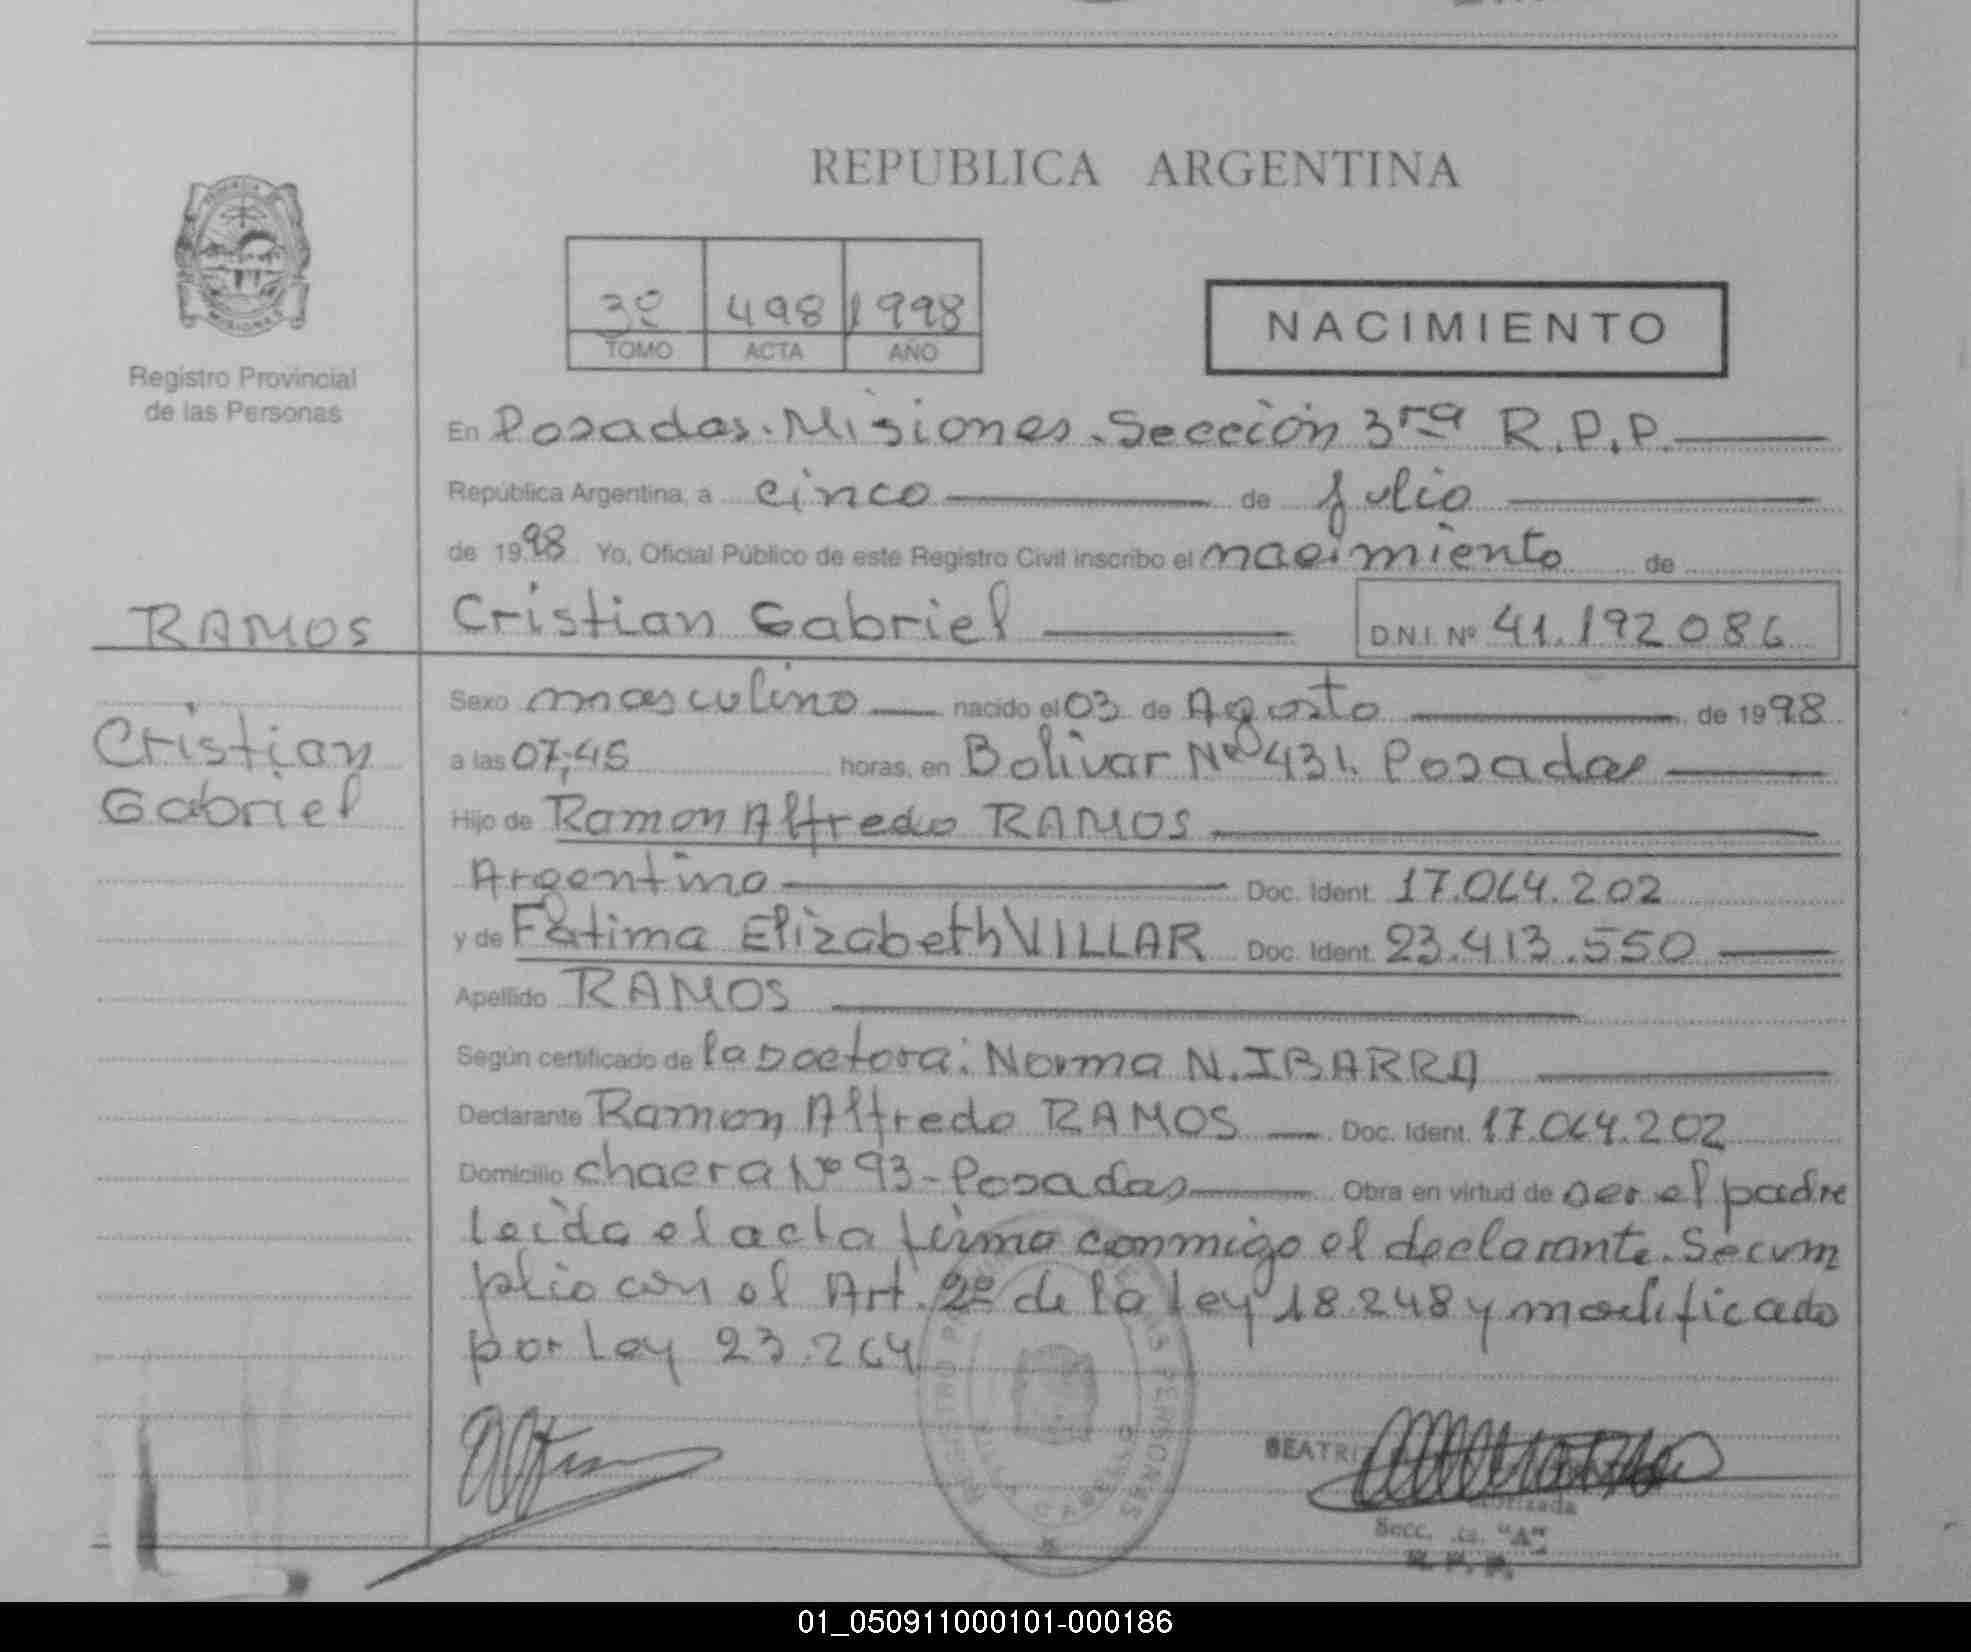 REPUBLICA ARGENTINA
3º 498 1998
TOMO ACTA AÑO
NACIMIENTO
MISIONES
Registro Provincial
de las Personas
En Posadas. Misiones. Sección 3ra R.P.P.
República Argentina, a cinco de Julio
de 1998 Yo, Oficial Público de este Registro Civil inscribo el nacimiento de
RAMOS
Cristian Gabriel D.N.I. Nº 41.192086
Cristian
Gabriel
Sexo masculino nacido el 03 de Agosto de 1998
a las 07,45 horas, en Bolivar Nº 431. Posadas
Hijo de Ramon Alfredo RAMOS
Argentino Doc. Ident. 17.064.202
y de Fátima Elizabeth VILLAR Doc. Ident. 23.413.550
Apellido RAMOS
Según certificado de la Doctora: Norma N. IBARRA
Declarante Ramon Alfredo RAMOS Doc. Ident. 17.064.202
Domicilio chacra Nº 93 - Posadas Obra en virtud de ser el padre
leida el acta firma conmigo el declarante. Se cum
plio con el Art. 2º de la Ley 18.248 y modificado
por Ley 23.264
BEATRI
Secc. "A"
R. P. P.
01_050911000101-000186